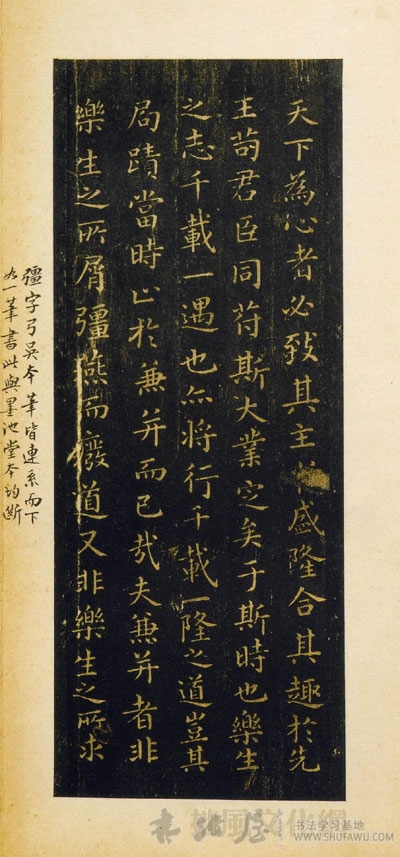 天下為心者必致其主於盛隆合其趣於先
王苟君臣同符斯大業定矣于斯時也樂生
之志千載一遇也亦將行千載一隆之道豈其
局蹟當時止於兼并而已哉夫兼并者非
樂生之所屑彊燕而廢道又非樂生之所求
彊字弓吳本筆皆連系而下
如一筆書此與墨池堂本均斷
书法学习基地
WWW.SHUFAWU.COM